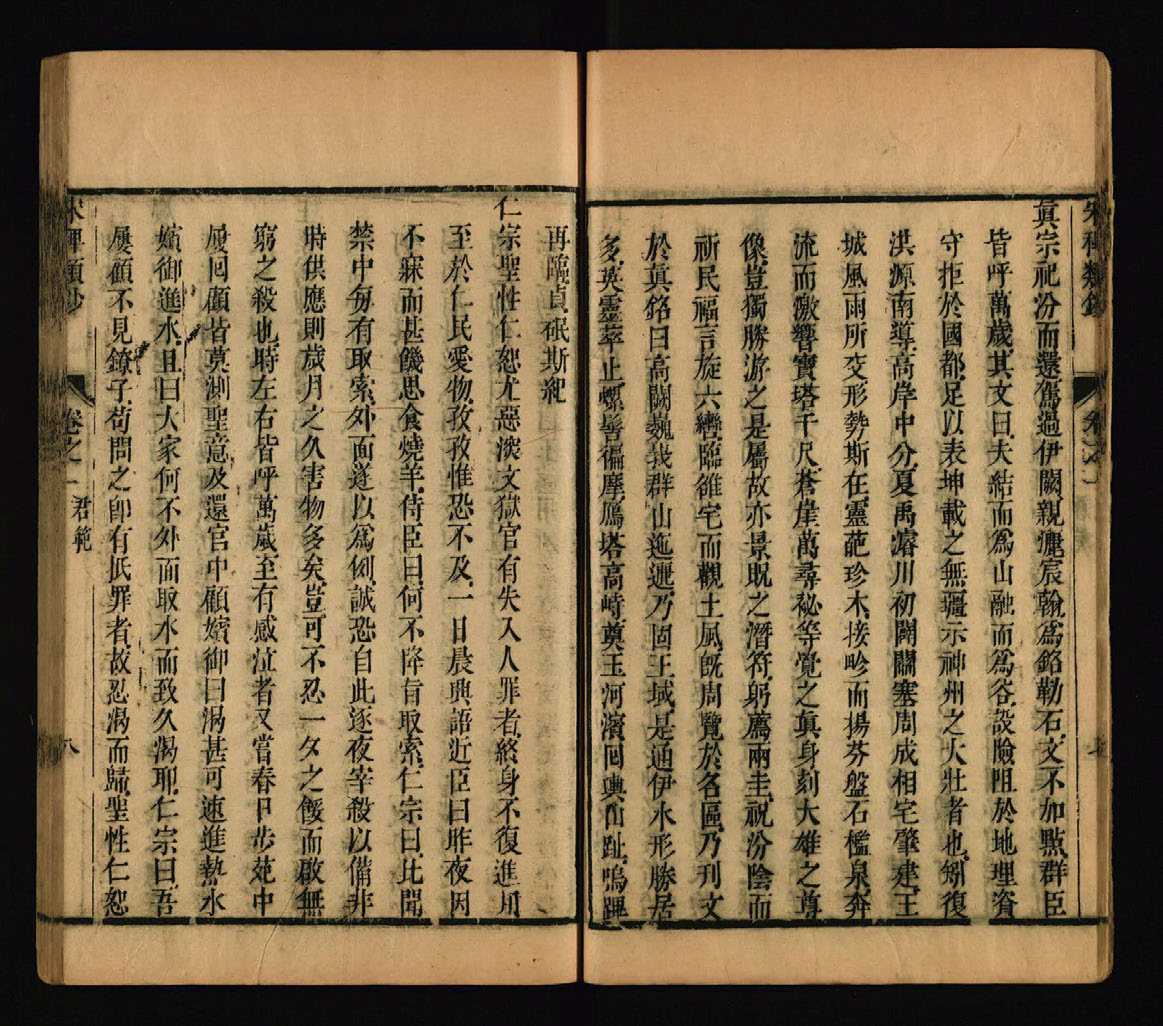 宋稗類鈔
卷之一
七
真宗祀汾而還駕過伊闕親灑宸翰爲銘勒石文不加點群臣
皆呼萬歲其文曰夫結而爲山融而爲谷設險阻於地理資
守拒於國都足以表坤載之無疆示神州之大壯者也矧復
洪源南導高岸中分夏禹濬川初闢關塞周成相宅肇建王
城風雨所交形勢斯在靈葩珍木接畛而揚芬盤石檻泉奔
流而激響寶塔千尺蒼崖萬尋祕等覺之眞身刻大雄之尊
像豈獨勝游之是屬故亦景貺之潛符躬薦兩圭祝汾陰而
祈民福言旋六轡臨雒宅而觀土風旣周覽於名區乃刋文
於眞銘曰高闕巍峩群山迤邐乃固王域是通伊水形勝居
多英靈萃止螺髻徧摩鴈塔高峙奠玉河濱囘輿山趾鳴蹕
再臨貞珉斯紀
仁宗聖性仁恕尤惡深文獄官有失入人罪者終身不復進用
至於仁民愛物孜孜惟恐不及一日晨興語近臣曰昨夜因
不寐而甚饑思食燒羊侍臣曰何不降旨取索仁宗曰比聞
禁中每有取索外面遂以爲例誠恐自此逐夜宰殺以備非
時供應則歲月之久害物多矣豈可不忍一夕之餒而啟無
窮之殺也時左右皆呼萬歲至有感泣者又嘗春日步苑中
屢囘顧皆莫測聖意及還宮中顧嬪御曰渴甚可速進熱水
嬪御進水且曰大家何不外面取水而致久渴耶仁宗曰吾
屢顧不見鐐子苟問之卽有抵罪者故忍渴而歸聖性仁恕
宋稗類鈔
卷之一
君範
八